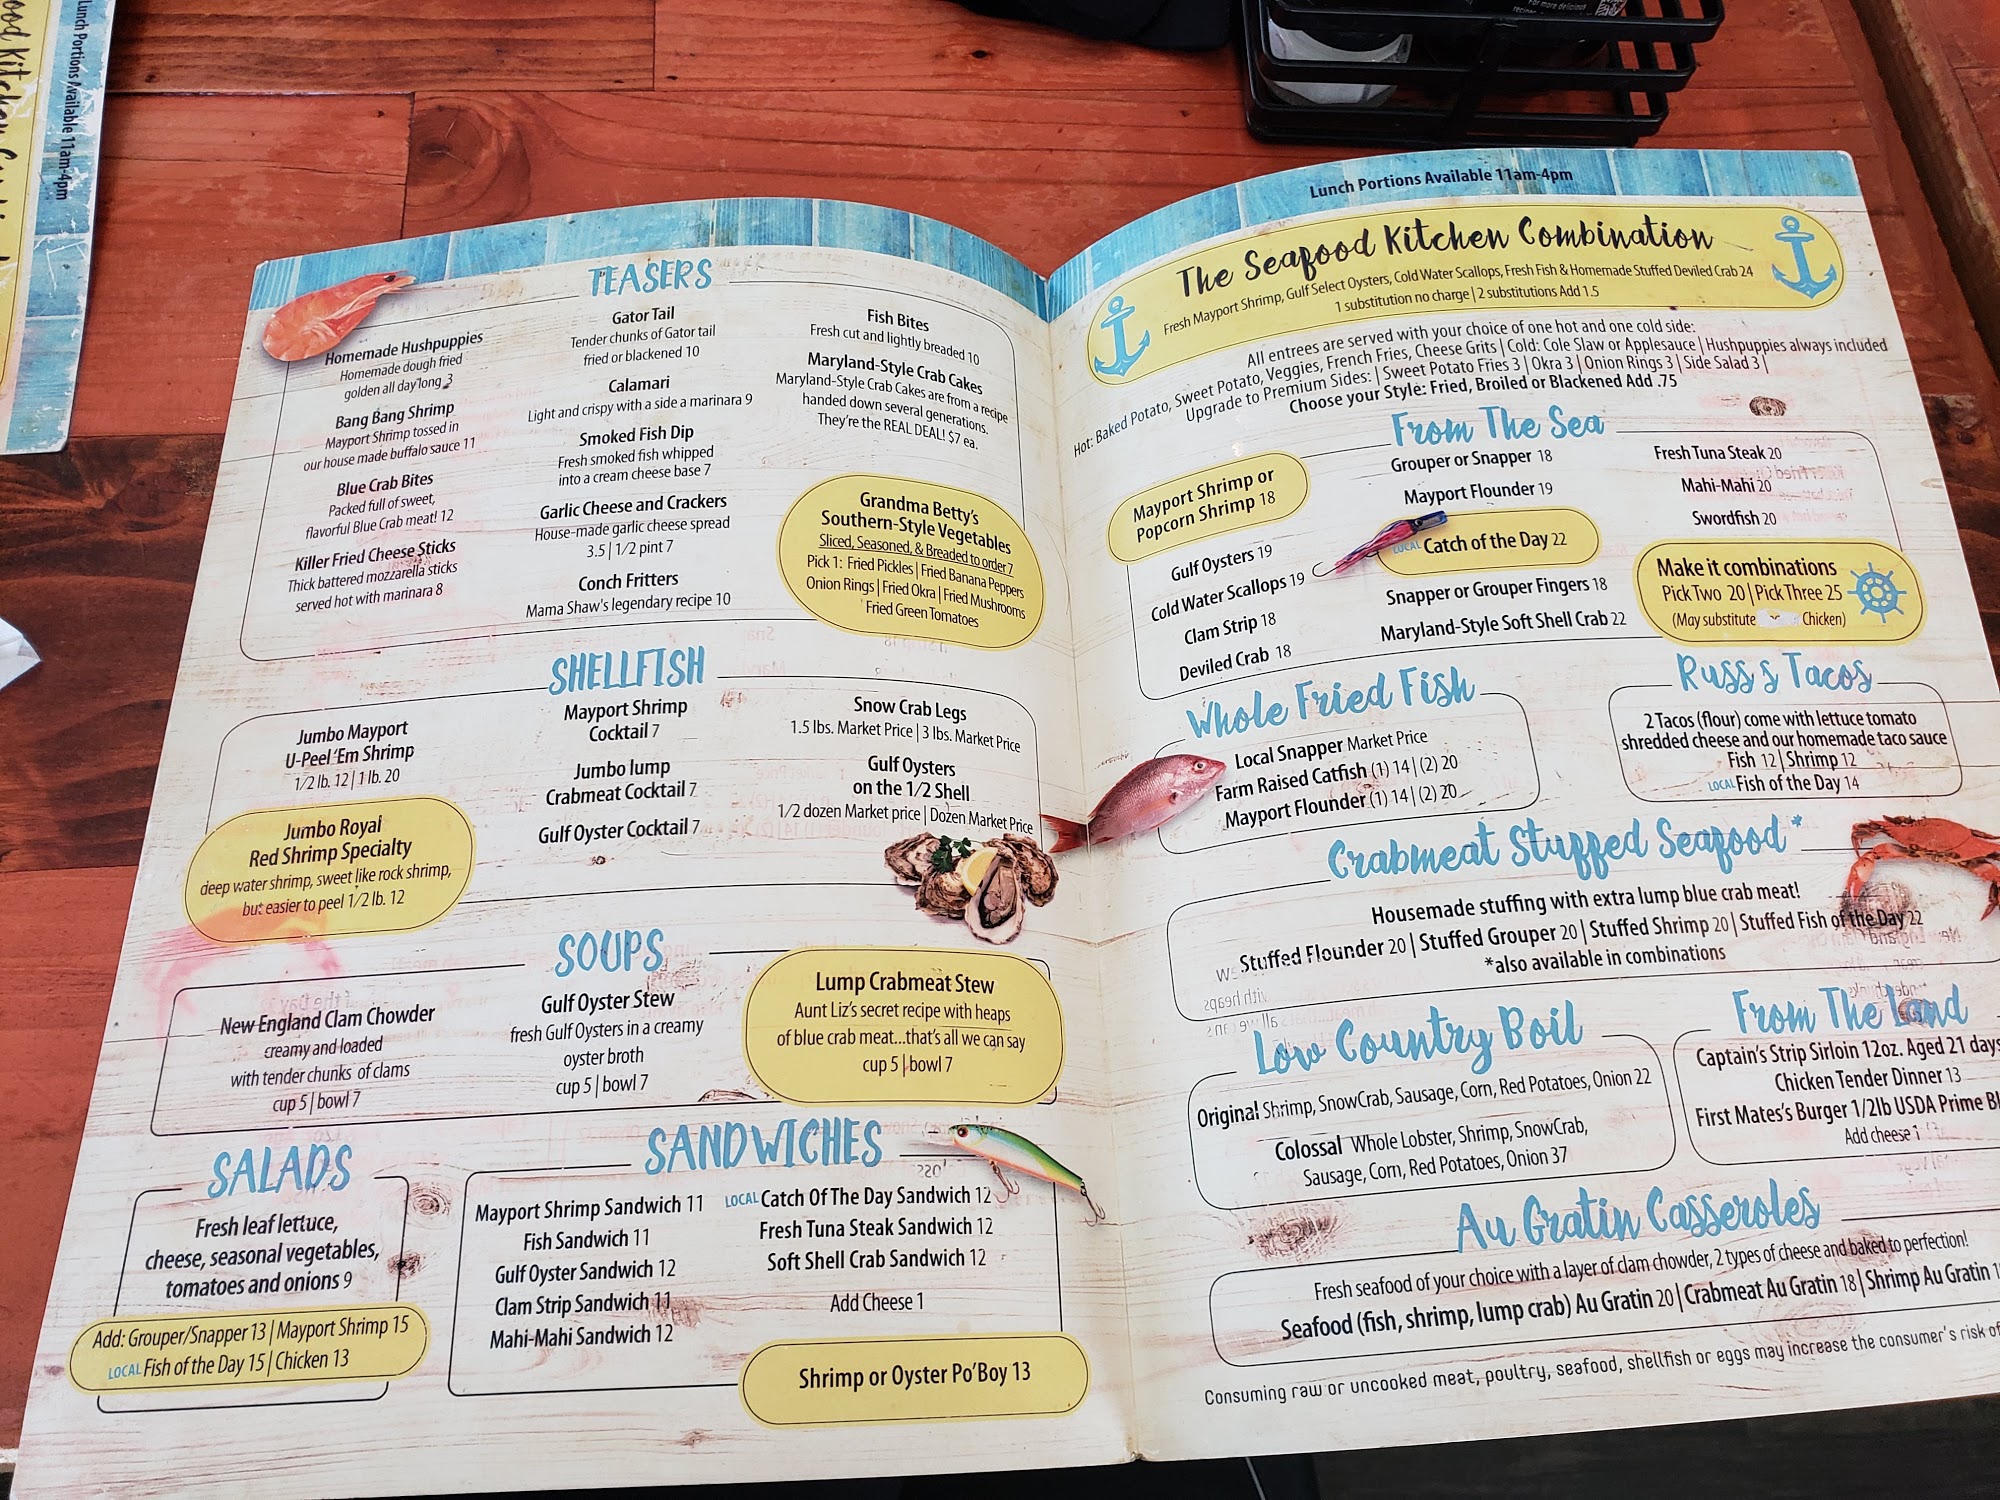 Lunch Portions Available 11am-4pm
For more delicious
TEASERS
Homemade Hushpuppies
Homemade dough fried
golden all day long 3
Bang Bang Shrimp
Mayport Shrimp tossed in
our house made buffalo sauce 11
Blue Crab Bites
Packed full of sweet,
flavorful Blue Crab meat! 12
Killer Fried Cheese Sticks
Thick battered mozzarella sticks
served hot with marinara 8
Gator Tail
Tender chunks of Gator tail
fried or blackened 10
Calamari
Light and crispy with a side a marinara 9
Smoked Fish Dip
Fresh smoked fish whipped
into a cream cheese base 7
Garlic Cheese and Crackers
House-made garlic cheese spread
3.5 | 1/2 pint 7
Conch Fritters
Mama Shaw's legendary recipe 10
Fish Bites
Fresh cut and lightly breaded 10
Maryland-Style Crab Cakes
Maryland-Style Crab Cakes are from a recipe
handed down several generations.
They're the REAL DEAL! $7 ea.
Grandma Betty's
Southern-Style Vegetables
Sliced, Seasoned, & Breaded to order 7
Pick 1: Fried Pickles | Fried Banana Peppers
Onion Rings | Fried Okra | Fried Mushrooms
Fried Green Tomatoes
SHELLFISH
Jumbo Mayport
U-Peel 'Em Shrimp
1/2 lb. 12 | 1 lb. 20
Jumbo Royal
Red Shrimp Specialty
deep water shrimp, sweet like rock shrimp,
but easier to peel 1/2 lb. 12
Mayport Shrimp
Cocktail 7
Jumbo lump
Crabmeat Cocktail 7
Gulf Oyster Cocktail 7
Snow Crab Legs
1.5 lbs. Market Price | 3 lbs. Market Price
Gulf Oysters
on the 1/2 Shell
1/2 dozen Market price | Dozen Market Price
SOUPS
New England Clam Chowder
creamy and loaded
with tender chunks of clams
cup 5 | bowl 7
Gulf Oyster Stew
fresh Gulf Oysters in a creamy
oyster broth
cup 5 | bowl 7
Lump Crabmeat Stew
Aunt Liz's secret recipe with heaps
of blue crab meat...that's all we can say
cup 5 | bowl 7
SALADS
Fresh leaf lettuce,
cheese, seasonal vegetables,
tomatoes and onions 9
Add: Grouper/Snapper 13 | Mayport Shrimp 15
LOCAL Fish of the Day 15 | Chicken 13
SANDWICHES
Mayport Shrimp Sandwich 11
Fish Sandwich 11
Gulf Oyster Sandwich 12
Clam Strip Sandwich 11
Mahi-Mahi Sandwich 12
LOCAL Catch Of The Day Sandwich 12
Fresh Tuna Steak Sandwich 12
Soft Shell Crab Sandwich 12
Add Cheese 1
Shrimp or Oyster Po'Boy 13
Lunch Portions Available 11am-4pm
The Seafood Kitchen Combination
Fresh Mayport Shrimp, Gulf Select Oysters, Cold Water Scallops, Fresh Fish & Homemade Stuffed Deviled Crab 24
1 substitution no charge | 2 substitutions Add 1.5
All entrees are served with your choice of one hot and one cold side:
Hot: Baked Potato, Sweet Potato, Veggies, French Fries, Cheese Grits | Cold: Cole Slaw or Applesauce | Hushpuppies always included
Upgrade to Premium Sides: | Sweet Potato Fries 3 | Okra 3 | Onion Rings 3 | Side Salad 3 |
Choose your Style: Fried, Broiled or Blackened Add .75
From The Sea
Mayport Shrimp or
Popcorn Shrimp 18
Gulf Oysters 19
Cold Water Scallops 19
Clam Strip 18
Deviled Crab 18
Grouper or Snapper 18
Mayport Flounder 19
LOCAL Catch of the Day 22
Snapper or Grouper Fingers 18
Maryland-Style Soft Shell Crab 22
Fresh Tuna Steak 20
Mahi-Mahi 20
Swordfish 20
Make it combinations
Pick Two 20 | Pick Three 25
(May substitute Chicken)
Whole Fried Fish
Local Snapper Market Price
Farm Raised Catfish (1) 14 | (2) 20
Mayport Flounder (1) 14 | (2) 20
Russ's Tacos
2 Tacos (flour) come with lettuce tomato
shredded cheese and our homemade taco sauce
Fish 12 | Shrimp 12
LOCAL Fish of the Day 14
Crabmeat Stuffed Seafood*
Housemade stuffing with extra lump blue crab meat!
Stuffed Flounder 20 | Stuffed Grouper 20 | Stuffed Shrimp 20 | Stuffed Fish of the Day 22
*also available in combinations
Low Country Boil
Original Shrimp, SnowCrab, Sausage, Corn, Red Potatoes, Onion 22
Colossal Whole Lobster, Shrimp, SnowCrab,
Sausage, Corn, Red Potatoes, Onion 37
From The Land
Captain's Strip Sirloin 12oz. Aged 21 days
Chicken Tender Dinner 13
First Mates's Burger 1/2lb USDA Prime
Add cheese 1
Au Gratin Casseroles
Fresh seafood of your choice with a layer of clam chowder, 2 types of cheese and baked to perfection!
Seafood (fish, shrimp, lump crab) Au Gratin 20 | Crabmeat Au Gratin 18 | Shrimp Au Gratin
Consuming raw or uncooked meat, poultry, seafood, shellfish or eggs may increase the consumer's risk of